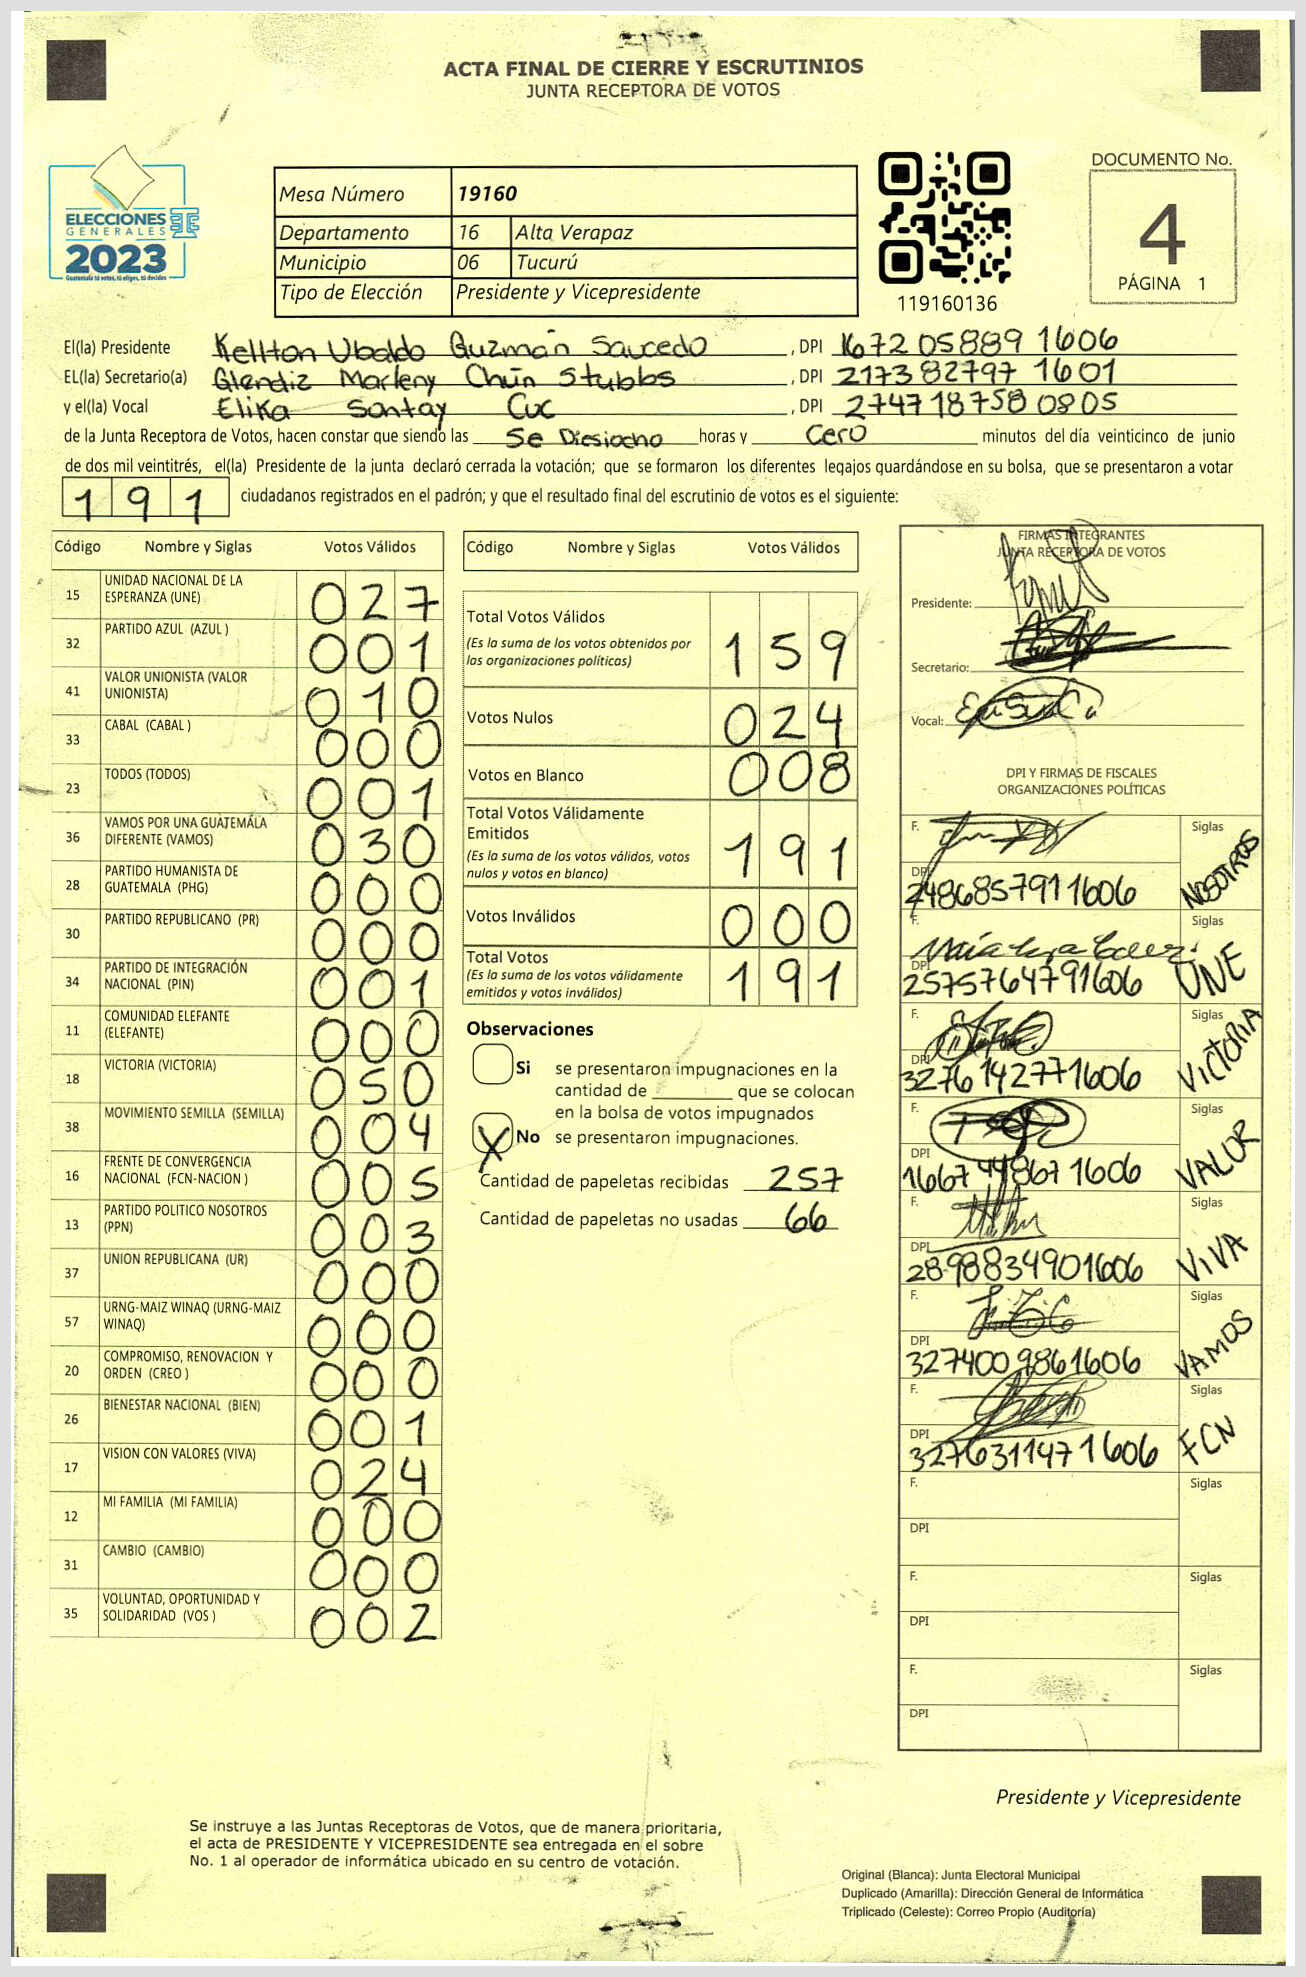 ACTA FINAL DE CIERRE Y ESCRUTINIOS
JUNTA RECEPTORA DE VOTOS
ELECCIONES
GENERALES
2023
Guatemala tú votes, tú eliges, tú decides
Mesa Número 19160
Departamento 16 Alta Verapaz
Municipio 06 Tucurú
Tipo de Elección Presidente y Vicepresidente
119160136
DOCUMENTO No.
4
PÁGINA 1
El(la) Presidente Kellton Ubaldo Guzmán Saucedo, DPI 1672 05889 1606
EL(la) Secretario(a) Glendiz Marleny Chún Stubbs, DPI 2173 82797 1601
y el(la) Vocal Elika Santay Cuc, DPI 2747 18758 0805
de la Junta Receptora de Votos, hacen constar que siendo las Se Diesiocho horas y Cero minutos del día veinticinco de junio
de dos mil veintitrés, el(la) Presidente de la junta declaró cerrada la votación; que se formaron los diferentes legajos quardándose en su bolsa, que se presentaron a votar
191 ciudadanos registrados en el padrón; y que el resultado final del escrutinio de votos es el siguiente:
Código Nombre y Siglas Votos Válidos
15 UNIDAD NACIONAL DE LA ESPERANZA (UNE) 027
32 PARTIDO AZUL (AZUL ) 001
41 VALOR UNIONISTA (VALOR UNIONISTA) 010
33 CABAL (CABAL ) 000
23 TODOS (TODOS) 001
36 VAMOS POR UNA GUATEMALA DIFERENTE (VAMOS) 030
28 PARTIDO HUMANISTA DE GUATEMALA (PHG) 000
30 PARTIDO REPUBLICANO (PR) 000
34 PARTIDO DE INTEGRACIÓN NACIONAL (PIN) 001
11 COMUNIDAD ELEFANTE (ELEFANTE) 000
18 VICTORIA (VICTORIA) 050
38 MOVIMIENTO SEMILLA (SEMILLA) 004
16 FRENTE DE CONVERGENCIA NACIONAL (FCN-NACION ) 005
13 PARTIDO POLITICO NOSOTROS (PPN) 003
37 UNION REPUBLICANA (UR) 000
57 URNG-MAIZ WINAQ (URNG-MAIZ WINAQ) 000
20 COMPROMISO, RENOVACION Y ORDEN (CREO ) 000
26 BIENESTAR NACIONAL (BIEN) 001
17 VISION CON VALORES (VIVA) 024
12 MI FAMILIA (MI FAMILIA) 000
31 CAMBIO (CAMBIO) 000
35 VOLUNTAD, OPORTUNIDAD Y SOLIDARIDAD (VOS ) 002
Código Nombre y Siglas Votos Válidos
Total Votos Válidos 159
(Es la suma de los votos obtenidos por
las organizaciones políticas)
Votos Nulos 024
Votos en Blanco 008
Total Votos Válidamente
Emitidos 191
(Es la suma de los votos válidos, votos
nulos y votos en blanco)
Votos Inválidos 000
Total Votos 191
(Es la suma de los votos válidamente
emitidos y votos inválidos)
Observaciones
Si se presentaron impugnaciones en la
cantidad de ________ que se colocan
en la bolsa de votos impugnados
X No se presentaron impugnaciones.
Cantidad de papeletas recibidas 257
Cantidad de papeletas no usadas 66
FIRMAS INTEGRANTES
JUNTA RECEPTORA DE VOTOS
Presidente:
Secretario:
Vocal:
DPI Y FIRMAS DE FISCALES
ORGANIZACIONES POLÍTICAS
F. Siglas
DPI 2486857911606 NOSOTROS
F. Siglas
DPI 2575764791606 UNE
F. Siglas
DPI 3276142771606 VICTORIA
F. Siglas
DPI 1667448671606 VALOR
F. Siglas
DPI 2898834901606 VIVA
F. Siglas
DPI 3274009861606 VAMOS
F. Siglas
DPI 3276311471606 FCN
F. Siglas
DPI
F. Siglas
DPI
F. Siglas
DPI
Presidente y Vicepresidente
Se instruye a las Juntas Receptoras de Votos, que de manera prioritaria,
el acta de PRESIDENTE Y VICEPRESIDENTE sea entregada en el sobre
No. 1 al operador de informática ubicado en su centro de votación.
Original (Blanca): Junta Electoral Municipal
Duplicado (Amarilla): Dirección General de Informática
Triplicado (Celeste): Correo Propio (Auditoría)